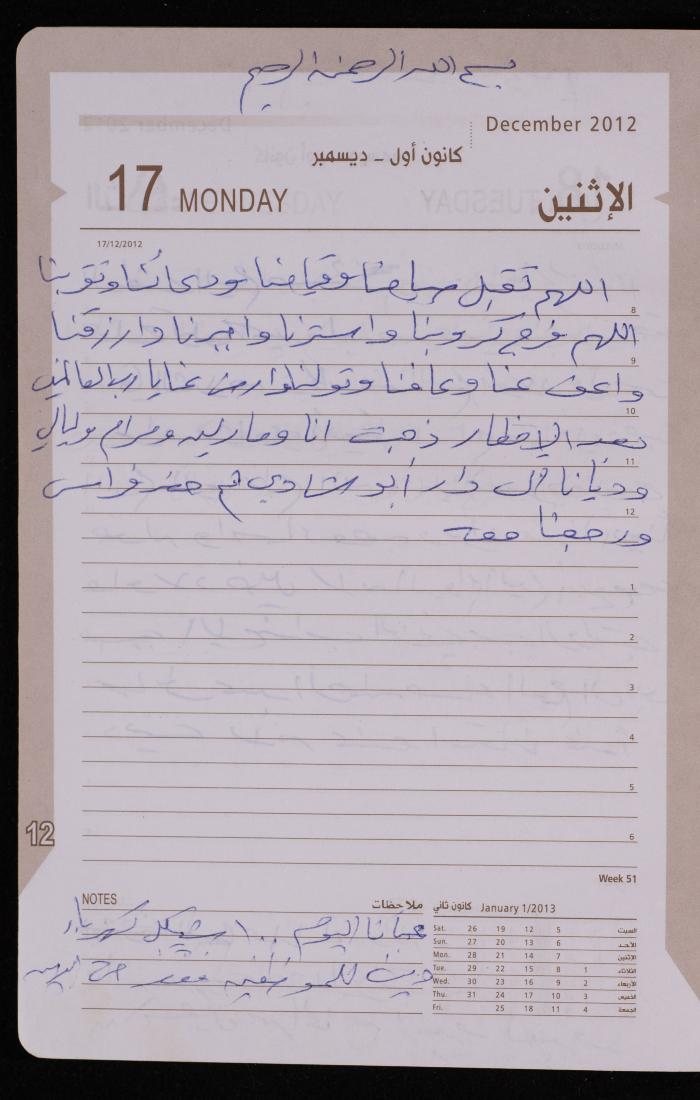 بسم الله الرحمن الرحيم
December 2012
كانون أول - ديسمبر
17 MONDAY الإثنين
17/12/2012
اللهم تقبل صيامنا وقيامنا ودعائنا وتقربنا
8
اللهم فرج كروبنا واسترنا واجبرنا وارزقنا
9
واعف عنا وعافنا وتولنا وارض عنا يا رب العالمين
10
بعد الإفطار ذهبت انا ومارلين ومرام وليالي
11
وديانا الى دار أبو شادي ثم حضر فراس
12
ورجعنا معه
1
2
3
4
5
6
12
Week 51
NOTES ملاحظات
عبأنا اليوم ١٠٠ شيكل كهرباء
دين للموظفين فقد
كانون ثاني January 1/2013
Sat. 26 19 12 5 السبت
Sun. 27 20 13 6 الأحد
Mon. 28 21 14 7 الإثنين
Tue. 29 22 15 8 1 الثلاثاء
Wed. 30 23 16 9 2 الأربعاء
Thu. 31 24 17 10 3 الخميس
Fri. 25 18 11 4 الجمعة